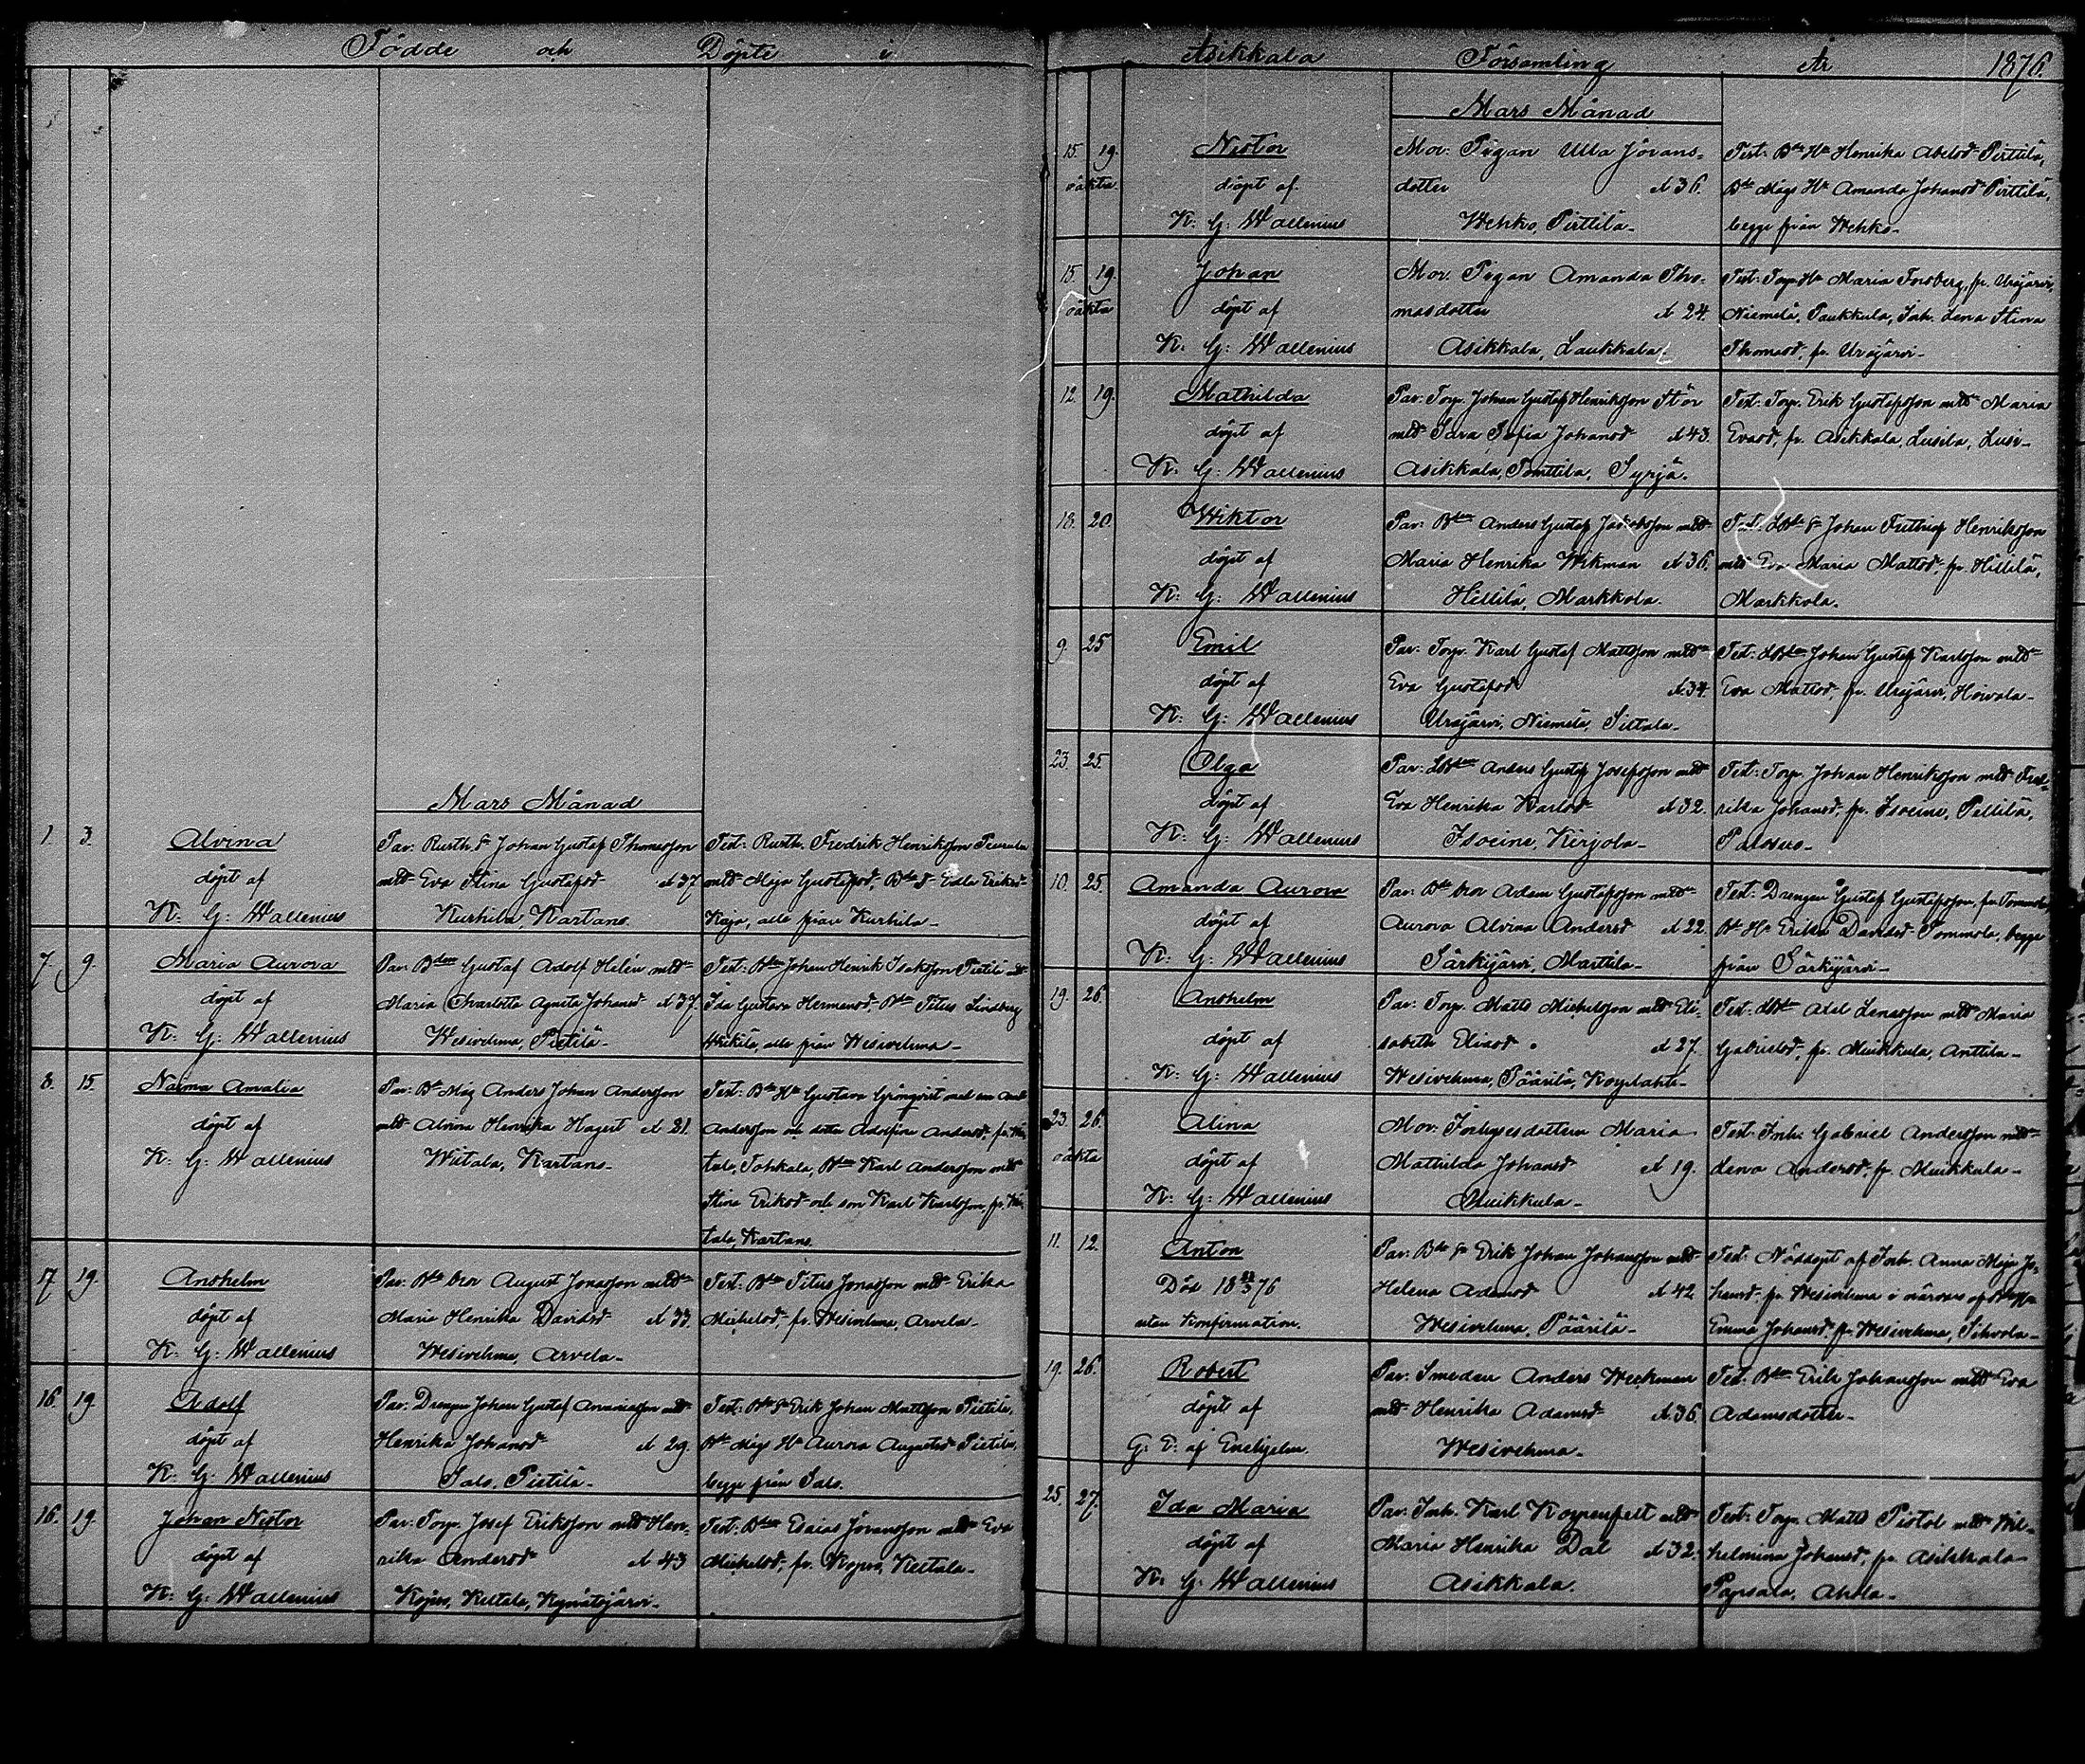 Födde och Döpte i
Mars Månad
1. 3. Alvina
döpt af
K: G: Wallenius
Par: Rusth. S. Johan Gustaf Thomasson
mtd Eva Stina Gustafsd Å 37
Kurhila, Kartano.
Test: Rusth. Fredrik Henriksson
mtd Maja Gustafsd, Bds d. Edla Eriksd
Kojo, alla från Kurhila
7. 9. Maria Aurora
döpt af
K: G: Wallenius
Par: Bden Gustaf Adolf Helén mtd
Maria Charlotta Agneta Johansd Å 37.
Wesivehma, Pietilä
Test: Bden Johan Henrik Isaksson Pietilä mtd
Ida Gustava Hermansd, Bden Titus Lindberg
alla från Wesivehma
8. 15. Naima Amalia
döpt af
K: G: Wallenius
Par: Bds Måg Anders Johan Andersson
mtd Alvina Henrika Hagert Å 21.
Wiitala, Kartano
Test: Bds Ha Gustava Grönqvist med son
Andersson och dotter Adolfina Andersd, fr. Wii-
tala, Tohkala, Bden Karl Andersson mtd
Stina Eriksd och son Karl Karlsson, fr. Wii-
tala, Kartano.
17. 19. Anshelm
döpt af
K: G: Wallenius
Par: Bds bror August Jonasson mtd
Maria Henrika Davidsd Å 33.
Wesivehma, Arvela
Test: Bden Titus Jonasson mtd Erika
Michelsd, fr. Wesivehma, Arvela
16. 19. Adolf
döpt af
K: G: Wallenius
Par: Drengen Johan Gustaf Ananiasson mtd
Henrika Johansd Å 29.
Salo, Pietilä
Test: Bds S. Erik Johan Mattsson Pietilä,
Bds Mågs Ha Aurora Augustsd Pietilä,
begge från Salo.
16. 19. Johan Nestor
döpt af
K: G: Wallenius
Par: Torp. Josef Eriksson mtd Hen-
rika Andersd Å 43
Kopso, Keltala, Kynätöjärvi
Test: Bden Esaias Jöransson mtd Eva
Michelsd, fr. Kopso, Keltala
Asikkala Församling År 1876.
Mars Månad
15. 19. Nestor
oäkta döpt af
K: G: Wallenius
Mor: Pigan Ulla Jörans-
dotter Å 36.
Wehko, Pirttilä
Test: Bds Ha Henrika Abelsd Pirttilä,
Bds Mågs Ha Amanda Johansd Pirttilä,
begge från Wehko
15. 19. Johan
oäkta döpt af
K: G: Wallenius
Mor: Pigan Amanda Tho-
masdotter Å 24.
Asikkala, Laukkala
Test: Torp. Ha Maria Forsberg, fr. Urajärvi,
Niemelä, Paukkula, Inh. Lena Stina
Thomasd, fr. Urajärvi
12. 19. Mathilda
döpt af
K: G: Wallenius
Par: Torp. Johan Gustaf Henriksson Stör
mtd Sara Sofia Johansd Å 43.
Asikkala, Tomttila, Syrjä.
Test: Torp. Erik Gustafsson mtd Maria
Evasd, fr. Asikkala, Lusila, Lusi
18. 20. Wiktor
döpt af
K: G: Wallenius
Par: Bden Anders Gustaf Jakobsson mtd
Maria Henrika Wikman Å 36.
Hillilä, Markkola.
Test: S. Johan Fritthiof Henriksson
mtd Eva Maria Mattsd, fr. Hillilä,
Markkola.
9. 25 Emil
döpt af
K: G: Wallenius
Par: Torp. Karl Gustaf Mattsson mtd
Eva Gustafsd Å 34.
Urajärvi, Niemelä, Siltala
Test: Johan Gustaf Karlsson mtd
Eva Mattsd, fr. Urajärvi, Hoivala
23. 25. Olga
döpt af
K: G: Wallenius
Par: Anders Gustaf Josefsson mtd
Eva Henrika Karlsd Å 32.
Isoeine, Kirjola
Test: Torp. Johan Henriksson mtd Fred-
rika Johansd, fr. Isoeine, Pellilä,
10. 25. Amanda Aurora
döpt af
K: G: Wallenius
Par: Bds bror Adam Gustafsson mtd
Aurora Alvina Andersd Å 22.
Särkijärvi, Marttila
Test: Drengen Gustaf Gustafsson, fr. Tommola,
Bds Ha Erika Davidsd Tommola, begge
från Särkijärvi
19. 26. Anshelm
döpt af
K: G: Wallenius
Par: Torp. Matts Michelsson mtd Eli-
sabeth Eliasd Å 27.
Wesivehma, Päärilä,
Test: Axel Lenasson mtd Maria
Gabrielsd, fr. Muikkula, Anttila
23. 26. Alina
oäkta döpt af
K: G: Wallenius
Mor: Inhysesdottern Maria
Mathilda Johansd Å 19.
Muikkula
Test: Inh. Gabriel Andersson mtd
Lena Andersd, fr. Muikkula
11. 12. Anton
Död 18 /3 76
utan Konfirmation.
Par: Bds S. Erik Johan Johansson mtd
Helena Adamsd Å 42
Wesivehma, Päärilä
Test: Nöddöpt af Inh. Anna Maja Jo-
hansd, fr. Wesivehma i närvaro af
Emma Johansd, fr. Wesivehma, Sihvola
19. 26. Robert
döpt af
G: E: af Enehjelm.
Par: Smeden Anders Weckman
mtd Henrika Adamsd Å 36
Wesivehma
Test: Bden Erik Johansson mtd Eva
Adamsdotter
25. 27. Ida Maria
döpt af
K: G: Wallenius
Par: Inh. Karl Roggenfelt mtd
Maria Henrika Dal Å 32.
Asikkala.
Test: Torp. Matts Pistol mtd Wil-
helmina Johansd, fr. Asikkala
Papsala, Ahola